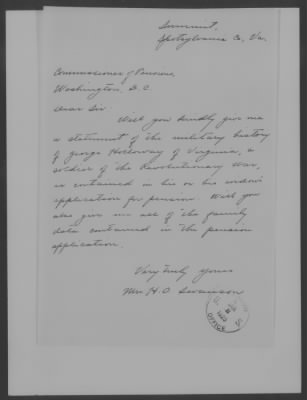 Summit,
Spotsylvania Co, Va.
Commissioner of Pensions,
Washington, D. C.
Dear Sir
Will you kindly give me
a statement of the military history
of George Holloway of Virginia, a
soldier of the Revolutionary War,
as contained in his or his widow's
application for pension. Will you
also give me all of the family
data contained in the pension
application.
Very truly yours
Mrs H. O. Swanson
OFFICE